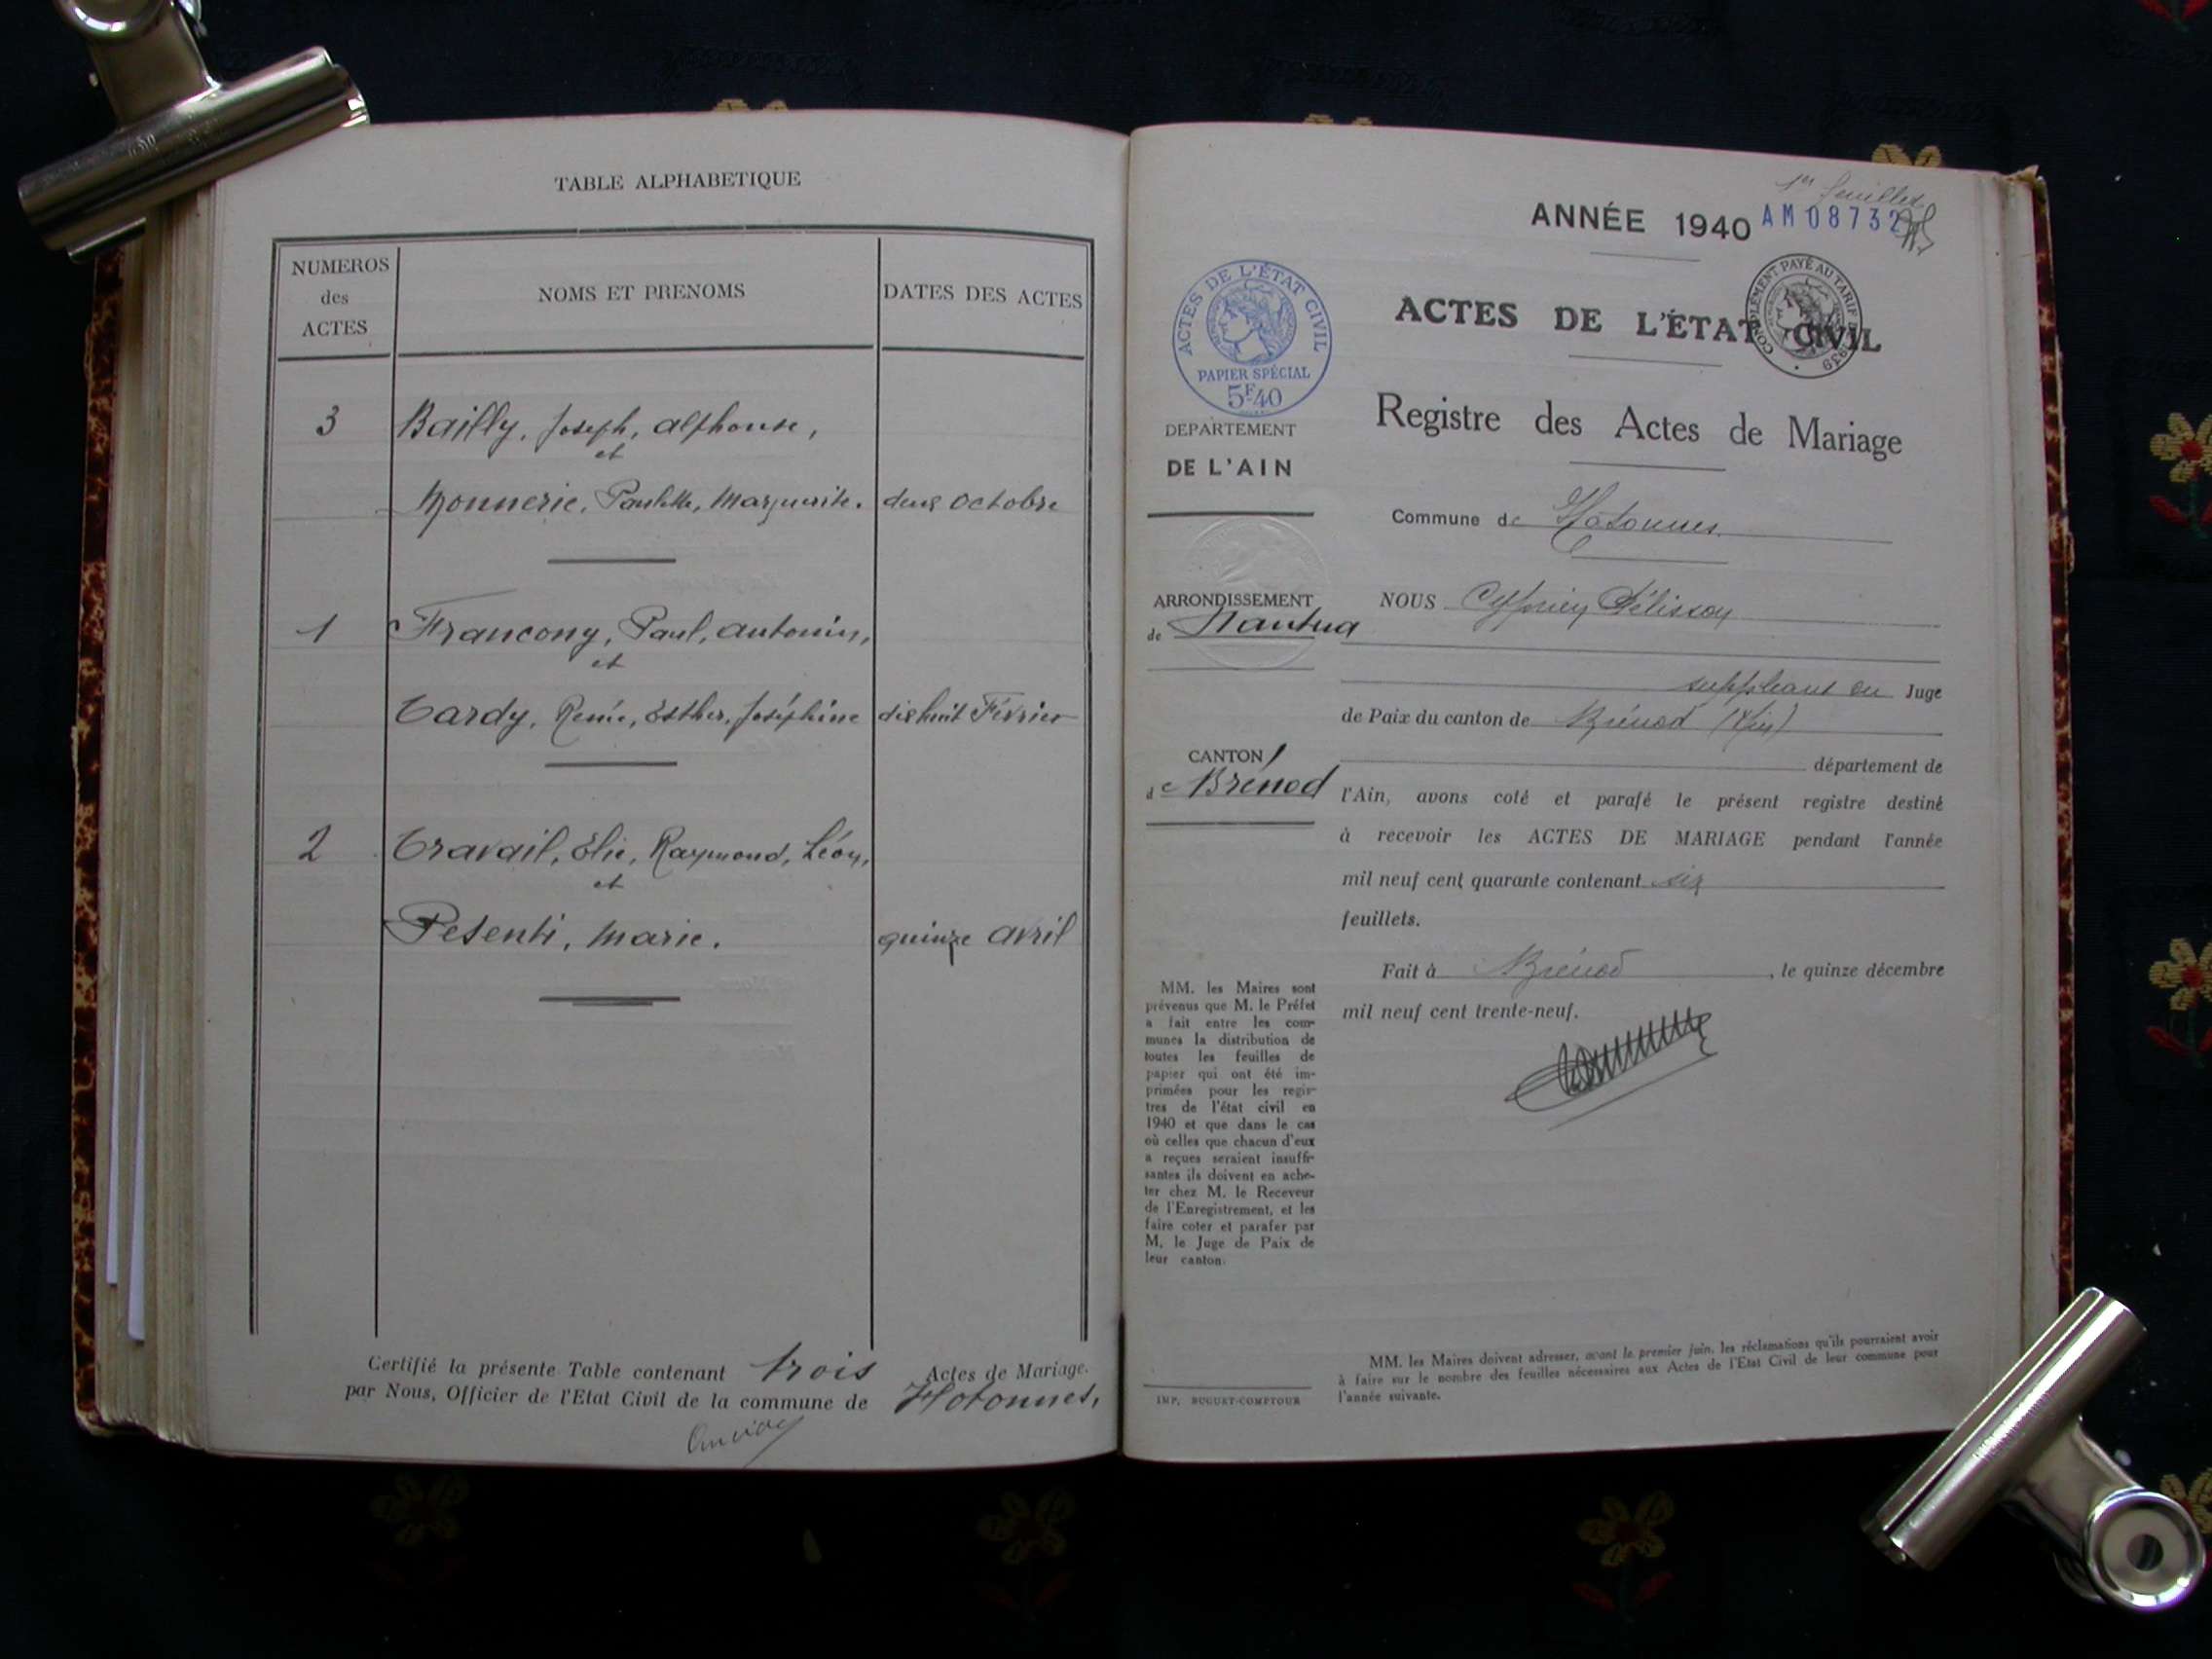 TABLE ALPHABETIQUE
NUMEROS
des
ACTES
NOMS ET PRENOMS
DATES DES ACTES
3 Bailly, Joseph, Alphonse,
et
Monnerie, Paulette, Marguerite. deux Octobre
1 Francony, Paul, Antonin,
et
Tardy, Renée, Esther, Joséphine dix huit Février
2 Travail, Elie, Raymond, Léon,
et
Pesenti, Marie. quinze Avril
Certifié la présente Table contenant trois Actes de Mariage.
par Nous, Officier de l'Etat Civil de la commune de Hotonnes,
1er feuillet
ANNÉE 1940 AM 08732
ACTES DE L'ÉTAT CIVIL
PAPIER SPÉCIAL
5F.40
COMPLÉMENT PAYÉ AU TARIF DE 1939
ACTES DE L'ÉTAT CIVIL
Registre des Actes de Mariage
DEPARTEMENT
DE L'AIN
Commune de Hotonnes
ARRONDISSEMENT
de Nantua
NOUS Cyprien Pélisson
suppléant du Juge
de Paix du canton de Brénod (Ain)
CANTON
de Brénod
département de
l'Ain, avons coté et parafé le présent registre destiné
à recevoir les ACTES DE MARIAGE pendant l'année
mil neuf cent quarante contenant six
feuillets.
Fait à Brénod, le quinze décembre
mil neuf cent trente-neuf.
MM. les Maires sont
prévenus que M. le Préfet
a fait entre les com-
munes la distribution de
toutes les feuilles de
papier qui ont été im-
primées pour les regis-
tres de l'état civil en
1940 et que dans le cas
où celles que chacun d'eux
a reçues seraient insuffi-
santes ils doivent en ache-
ter chez M. le Receveur
de l'Enregistrement, et les
faire coter et parafer par
M. le Juge de Paix de
leur canton.
IMP. BUGUET-COMPTOUR
MM. les Maires doivent adresser, avant le premier juin, les réclamations qu'ils pourraient avoir
à faire sur le nombre des feuilles nécessaires aux Actes de l'Etat Civil de leur commune pour
l'année suivante.